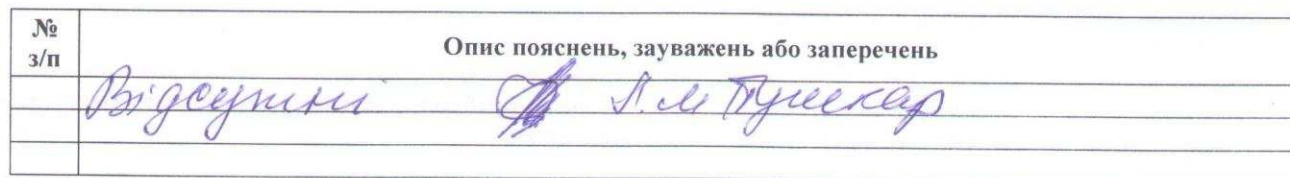 №
з/п
Опис пояснень, зауважень або заперечень
Відсутні Л.М Пушкар